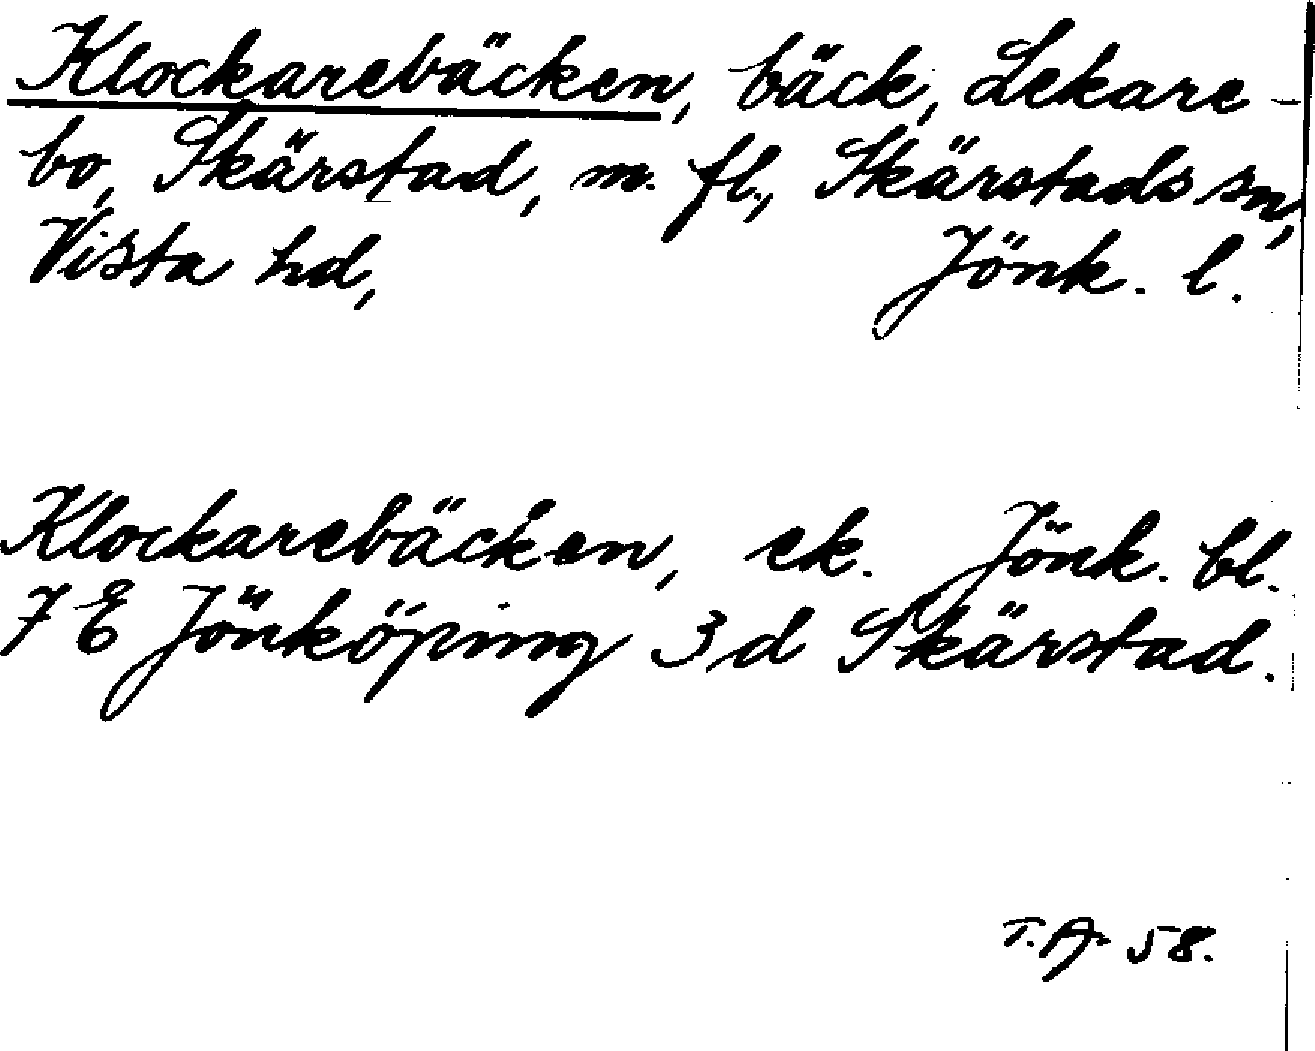 Klockarebäcken, bäck, Lekare-
bo, Skärstad, m. fl., Skärstads sn,
Vista hd, Jönk. l.
Klockarebäcken, ek. Jönk. bl.
7 E Jönköping 3 d Skärstad.
T. A. 58.